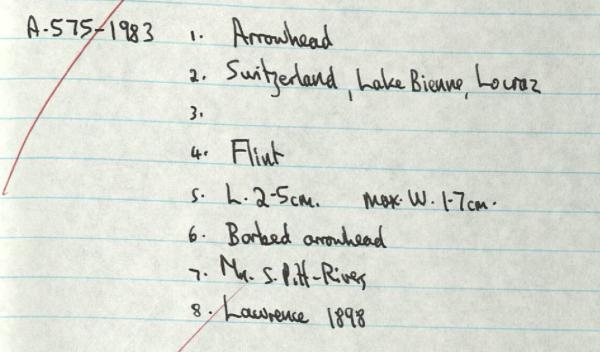 A.575-1983 1. Arrowhead
2. Switzerland, Lake Bienne, Locraz
3.
4. Flint
5. L. 2.5cm. max. W. 1.7cm.
6. Barbed arrowhead
7. Mr. S. Pitt-Rivers
8. Lawrence 1898